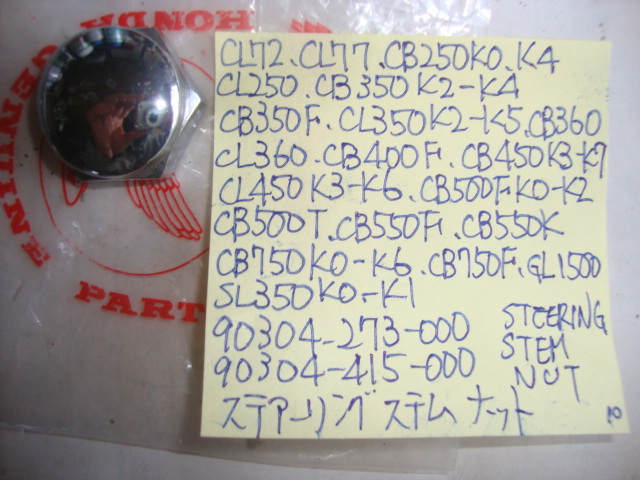 HONDA
GENUINE
PARTS
CL72.CL77.CB250K0.K4
CL250.CB350K2-K4
CB350F.CL350K2-K5.CB360
CL360.CB400F.CB450K3-K7
CL450K3-K6.CB500F.K0-K2
CB500T.CB550F.CB550K
CB750K0-K6.CB750F.GL1500
SL350K0-K1
90304-273-000 STEERING
90304-415-000 STEM
NUT
ステアーリング ステム ナット
10